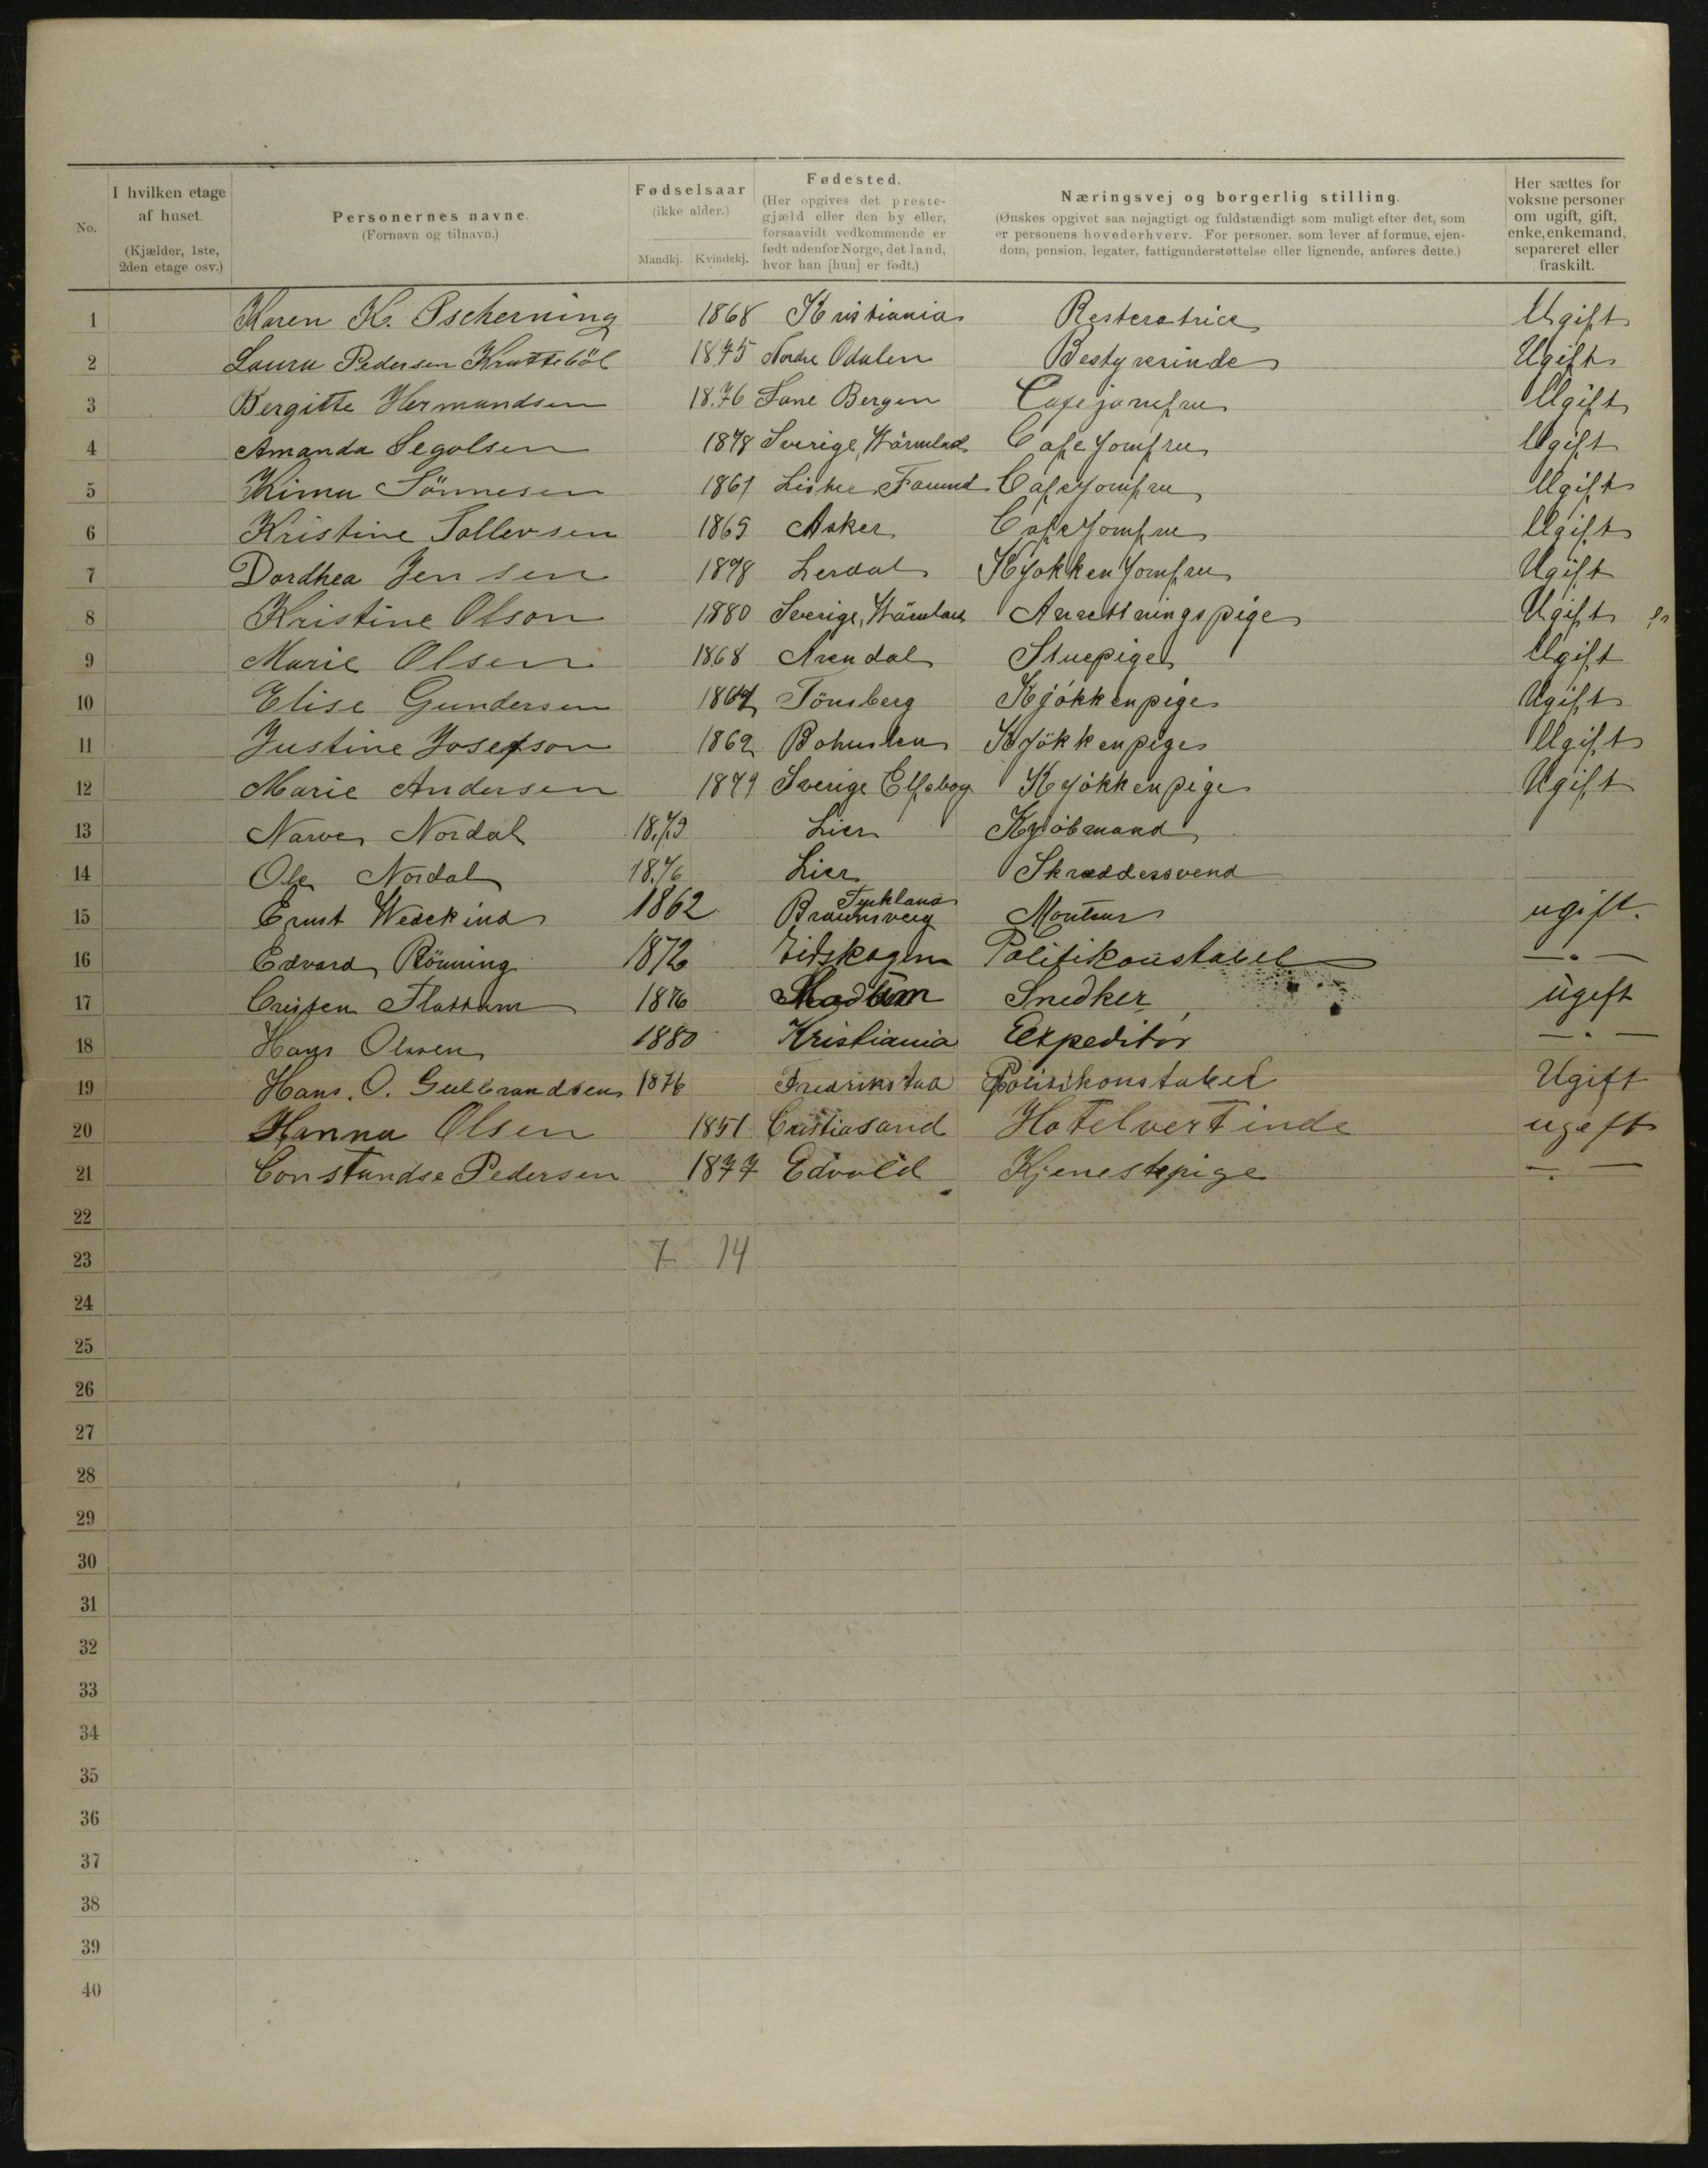 No.
I hvilken etage af huset. (Kjælder, 1ste, 2den etage osv.)
Personernes navne. (Fornavn og tilnavn.)
Fødselsaar (ikke alder.) Mandkj. Kvindekj.
Fødested. (Her opgives det prestegjæld eller den by eller, forsaavidt vedkommende er født udenfor Norge, det land, hvor han [hun] er født.)
Næringsvej og borgerlig stilling. (Ønskes opgivet saa nøjagtigt og fuldstændigt som muligt efter det, som er personens hovederhverv. For personer, som lever af formue, ejendom, pension, legater, fattigunderstøttelse eller lignende, anføres dette.)
Her sættes for voksne personer om ugift, gift, enke, enkemand, separeret eller fraskilt.
1 Karen K. Tscherning 1868 Kristiania Resteratrice Ugift
2 Laura Pedersen 1875 Nordre Odalen Bestyrerinde Ugift
3 Bergitte Hermandsen 1876 Fane Bergen Cafejomfru Ugift
4 Amanda Segolsen 1878 Sverige, Wärmland Cafe Jomfru Ugift
5 1861 Lister Cafe Jomfru Ugift
6 Kristine Tollevsen 1869 Asker Cafe Jomfru Ugift
7 Dordhea Jensen 1878 Lerdal Kjøkken Jomfru Ugift
8 Kristine Olson 1880 Sverige, Anrettningspige Ugift
9 Marie Olsen 1868 Arendal Stuepige Ugift
10 Elise Gundersen Tönsberg Kjökkenpige Ugift
11 Justine Josefson 1862 Bohuslen Kjökkenpige Ugift
12 Marie Andersen Sverige Elfsborg Kjökkenpige Ugift
13 Narve Nordal 1879 Lier Kjöbmand
14 Ole Nordal 1876 Lier Skræddersvend
15 Ernst Wedekind 1862 Tyskland Braunsveig Monteur ugift.
16 Edvard Rönning 1872 Eidskogen Politikonstabel — " —
17 1876 Modum Snedker ugift
18 Hans Olssen 1880 Kristiania Expeditör — " —
19 Hans. O. Gulbrandsen 1876 Fredrikstad Politikonstabel Ugift
20 Hanna Olsen 1851 Cristiasand Hotelvertinde ugeft
21 Constandse Pedersen 1877 Edvold Tjenestepige — " —
22
23 7 14
24
25
26
27
28
29
30
31
32
33
34
35
36
37
38
39
40